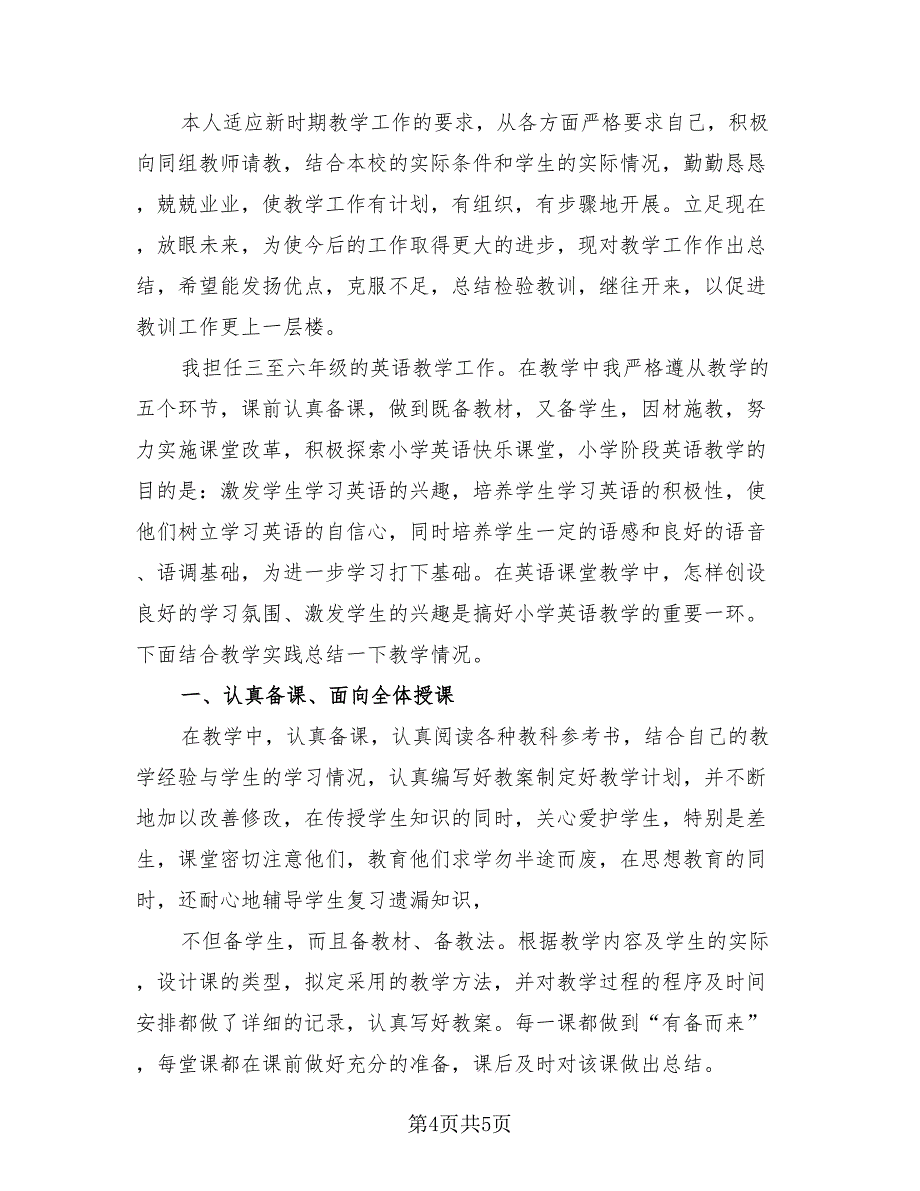 本人适应新时期教学工作的要求，从各方面严格要求自己，积极
向同组教师请教，结合本校的实际条件和学生的实际情况，勤勤恳恳
，兢兢业业，使教学工作有计划，有组织，有步骤地开展。立足现在
，放眼未来，为使今后的工作取得更大的进步，现对教学工作作出总
结，希望能发扬优点，克服不足，总结检验教训，继往开来，以促进
教训工作更上一层楼。
我担任三至六年级的英语教学工作。在教学中我严格遵从教学的
五个环节，课前认真备课，做到既备教材，又备学生，因材施教，努
力实施课堂改革，积极探索小学英语快乐课堂，小学阶段英语教学的
目的是：激发学生学习英语的兴趣，培养学生学习英语的积极性，使
他们树立学习英语的自信心，同时培养学生一定的语感和良好的语音
、语调基础，为进一步学习打下基础。在英语课堂教学中，怎样创设
良好的学习氛围、激发学生的兴趣是搞好小学英语教学的重要一环。
下面结合教学实践总结一下教学情况。
一、认真备课、面向全体授课
在教学中，认真备课，认真阅读各种教科参考书，结合自己的教
学经验与学生的学习情况，认真编写好教案制定好教学计划，并不断
地加以改善修改，在传授学生知识的同时，关心爱护学生，特别是差
生，课堂密切注意他们，教育他们求学勿半途而废，在思想教育的同
时，还耐心地辅导学生复习遗漏知识，
不但备学生，而且备教材、备教法。根据教学内容及学生的实际
，设计课的类型，拟定采用的教学方法，并对教学过程的程序及时间
安排都做了详细的记录，认真写好教案。每一课都做到“有备而来”
，每堂课都在课前做好充分的准备，课后及时对该课做出总结。
第4页共5页